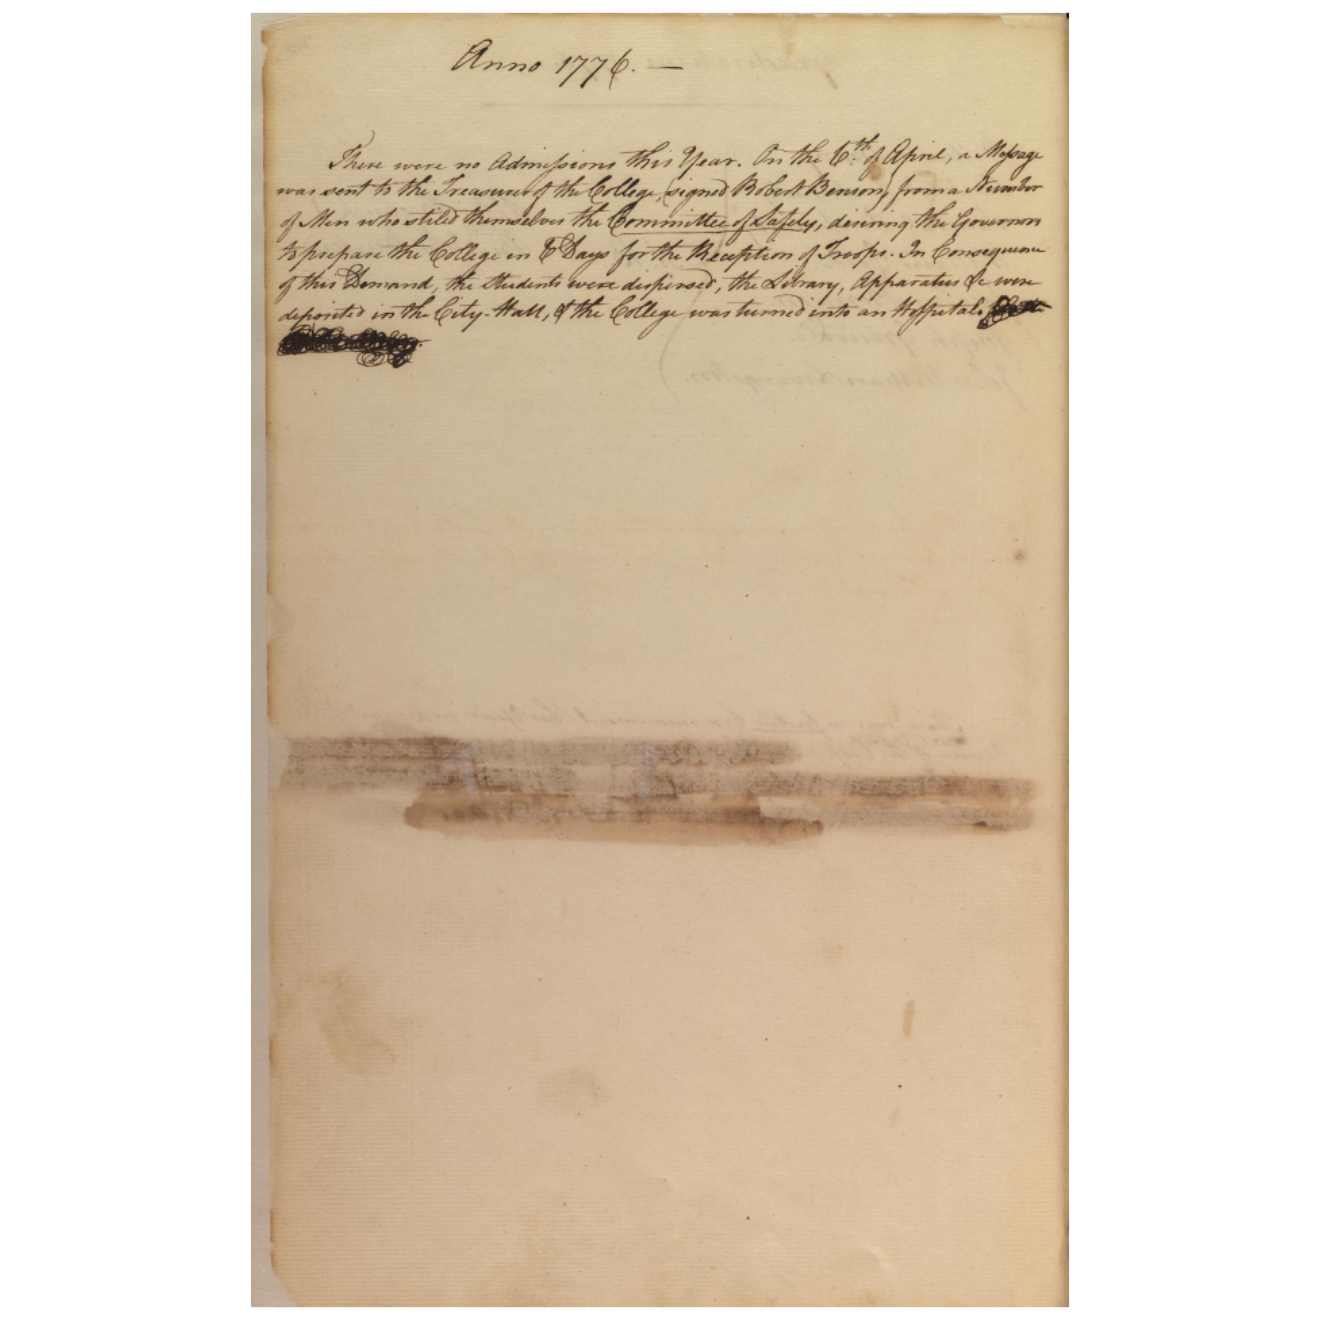 Anno 1776. —
There were no Admissions this Year. On the 6th. of April, a Message
was sent to the Treasurer of the College, signed Robert Benson, from a Number
of Men who stiled themselves the Committee of Safety, desiring the Governors
to prepare the College in 6 Days for the Reception of Troops. In Consequence
of this Demand, the Students were dispersed, the Library, Apparatus &c were
deposited in the City-Hall, & the College was turned into an Hospital.